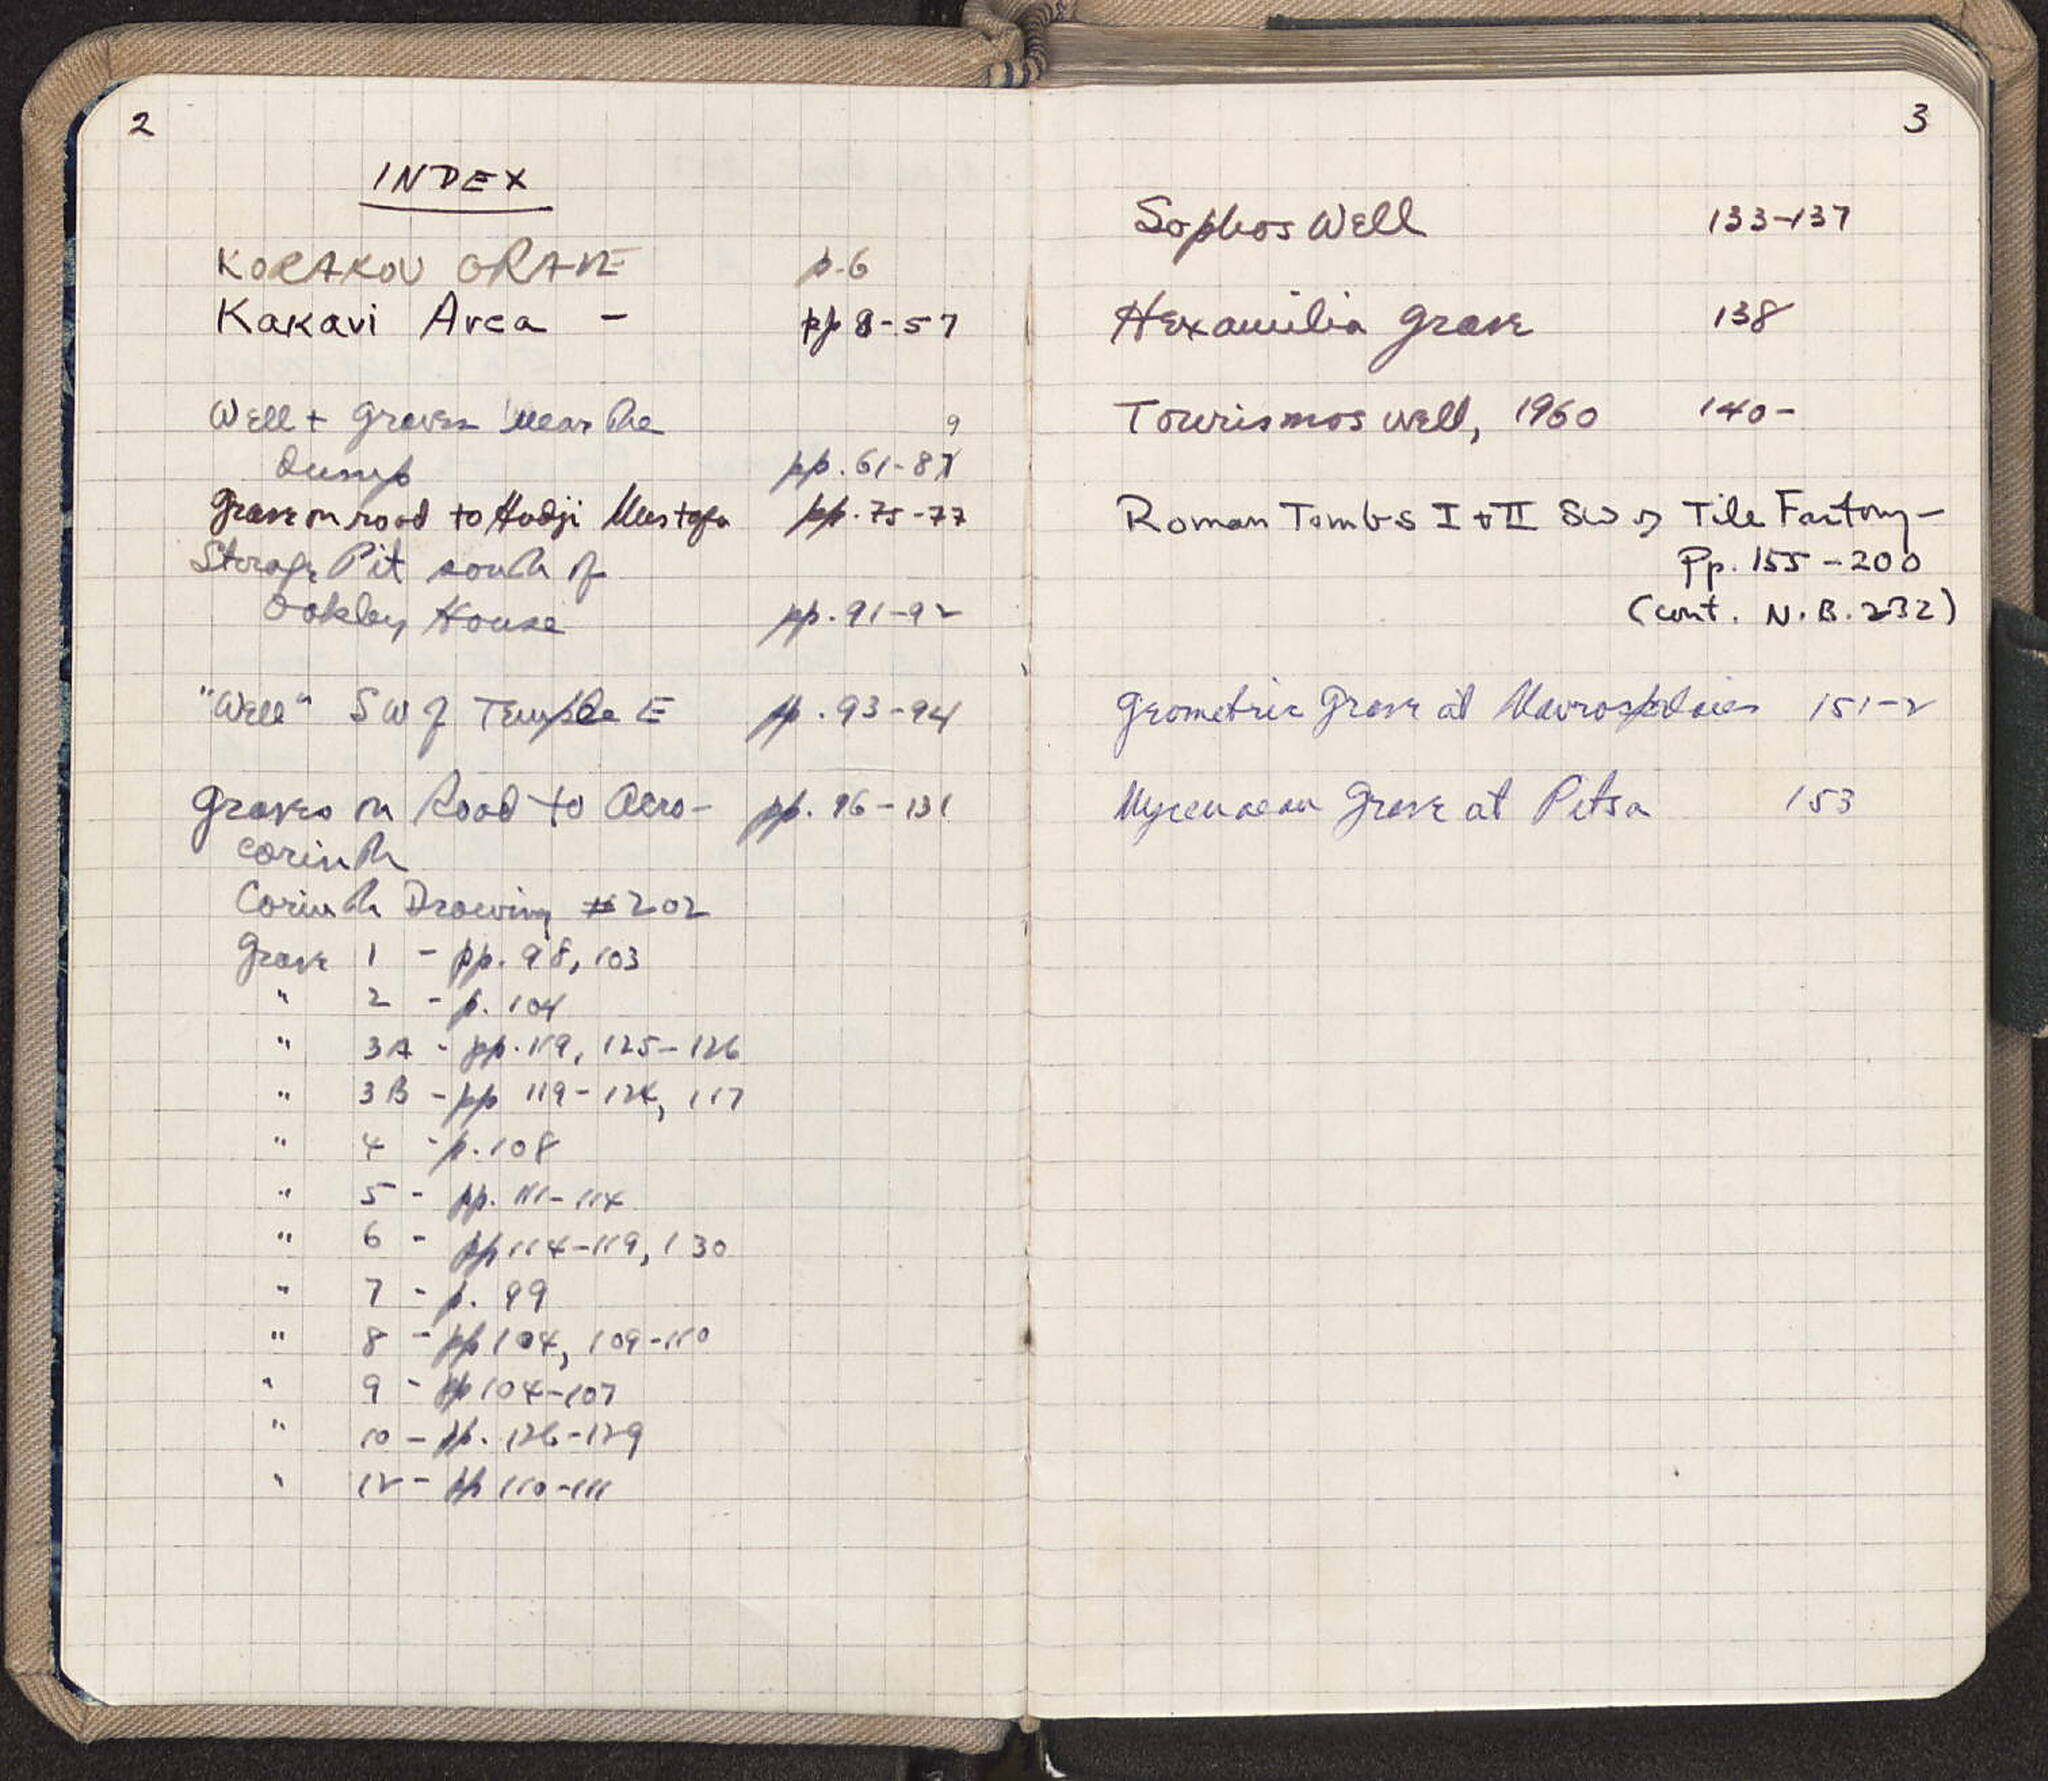 2
INDEX
KORAKOU GRAVE p. 6
Kakavi Area - pp 8-57
Well + Graves near the 9
dump pp. 61-87
Grave on road to Hadji Mustafa pp. 75-77
Storage Pit south of
Oakley House pp. 91-92
"Well" SW of Temple E pp. 93-94
Graves on Road to Acro- pp. 96-131
corinth
Corinth Drawing #202
Grave 1 - pp. 98, 103
" 2 - p. 104
" 3A - pp. 119, 125-126
" 3B - pp 119-124, 117
" 4 - p. 108
" 5 - pp. 111-114
" 6 - pp 114-119, 130
" 7 - p. 99
" 8 - pp 104, 109-110
" 9 - pp 104-107
" 10 - pp. 126-129
" 12 - pp 110-111
3
Sophos Well 133-137
Hexamilia Grave 138
Tourismos well, 1960 140-
Roman Tombs I + II SW of Tile Factory-
Pp. 155-200
(cont. N.B. 232)
Geometric Grave at Mavrospelaies 151-2
Mycenaean Grave at Petsa 153